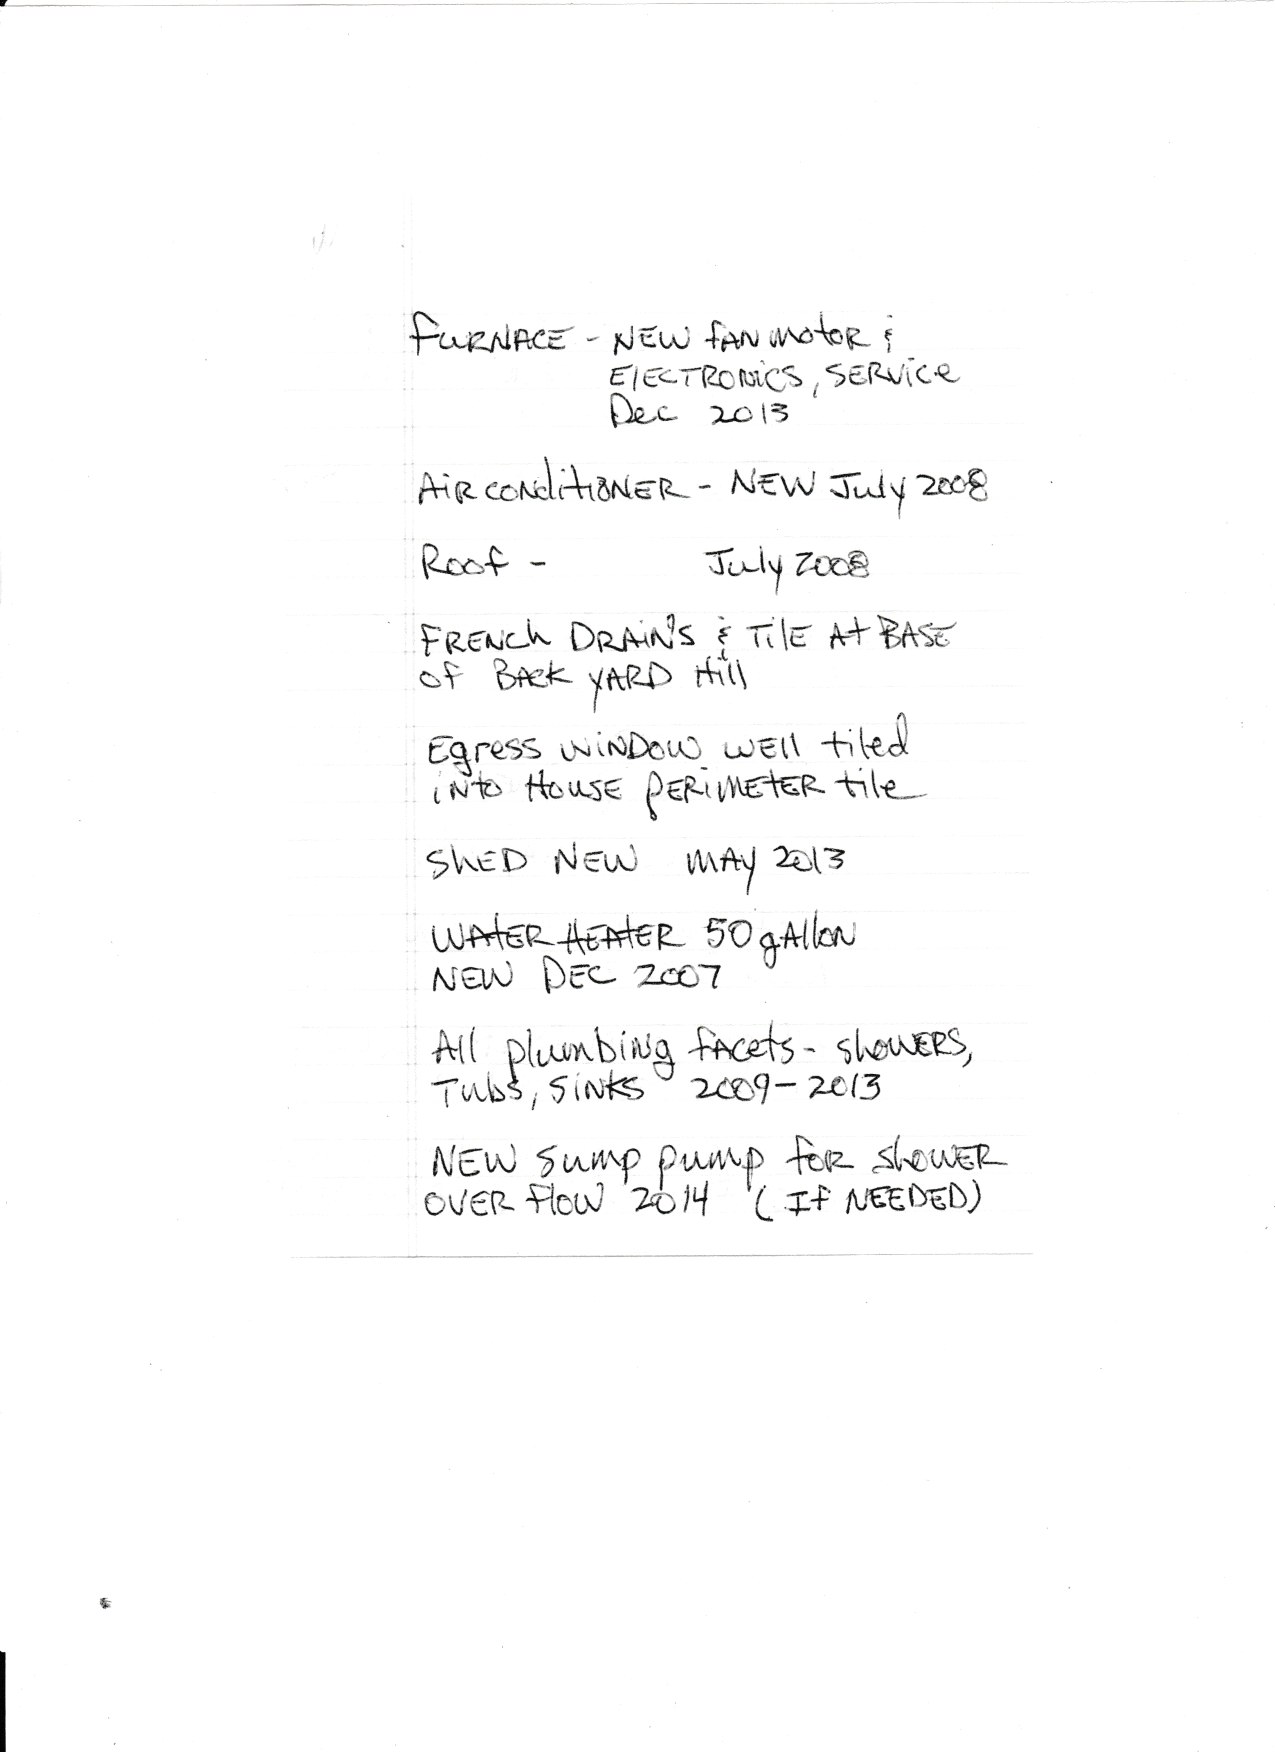 FURNACE - NEW FAN MOTOR &
ELECTRONICS, SERVICE
Dec 2013
AIR CONDITIONER - NEW July 2008
Roof - July 2008
FRENCH DRAIN'S & TILE At BASE
of BACK YARD Hill
Egress WINDOW WELL tiled
INto HOUSE PERIMETER tile
SHED NEW MAY 2013
WATER HEATER 50 gAllON
NEW DEC 2007
All plumbing fACets - SHOWERS,
TUbS, SINKS 2009-2013
NEW Sump pump foR SHOWER
OVER flOW 2014 (If NEEDED)